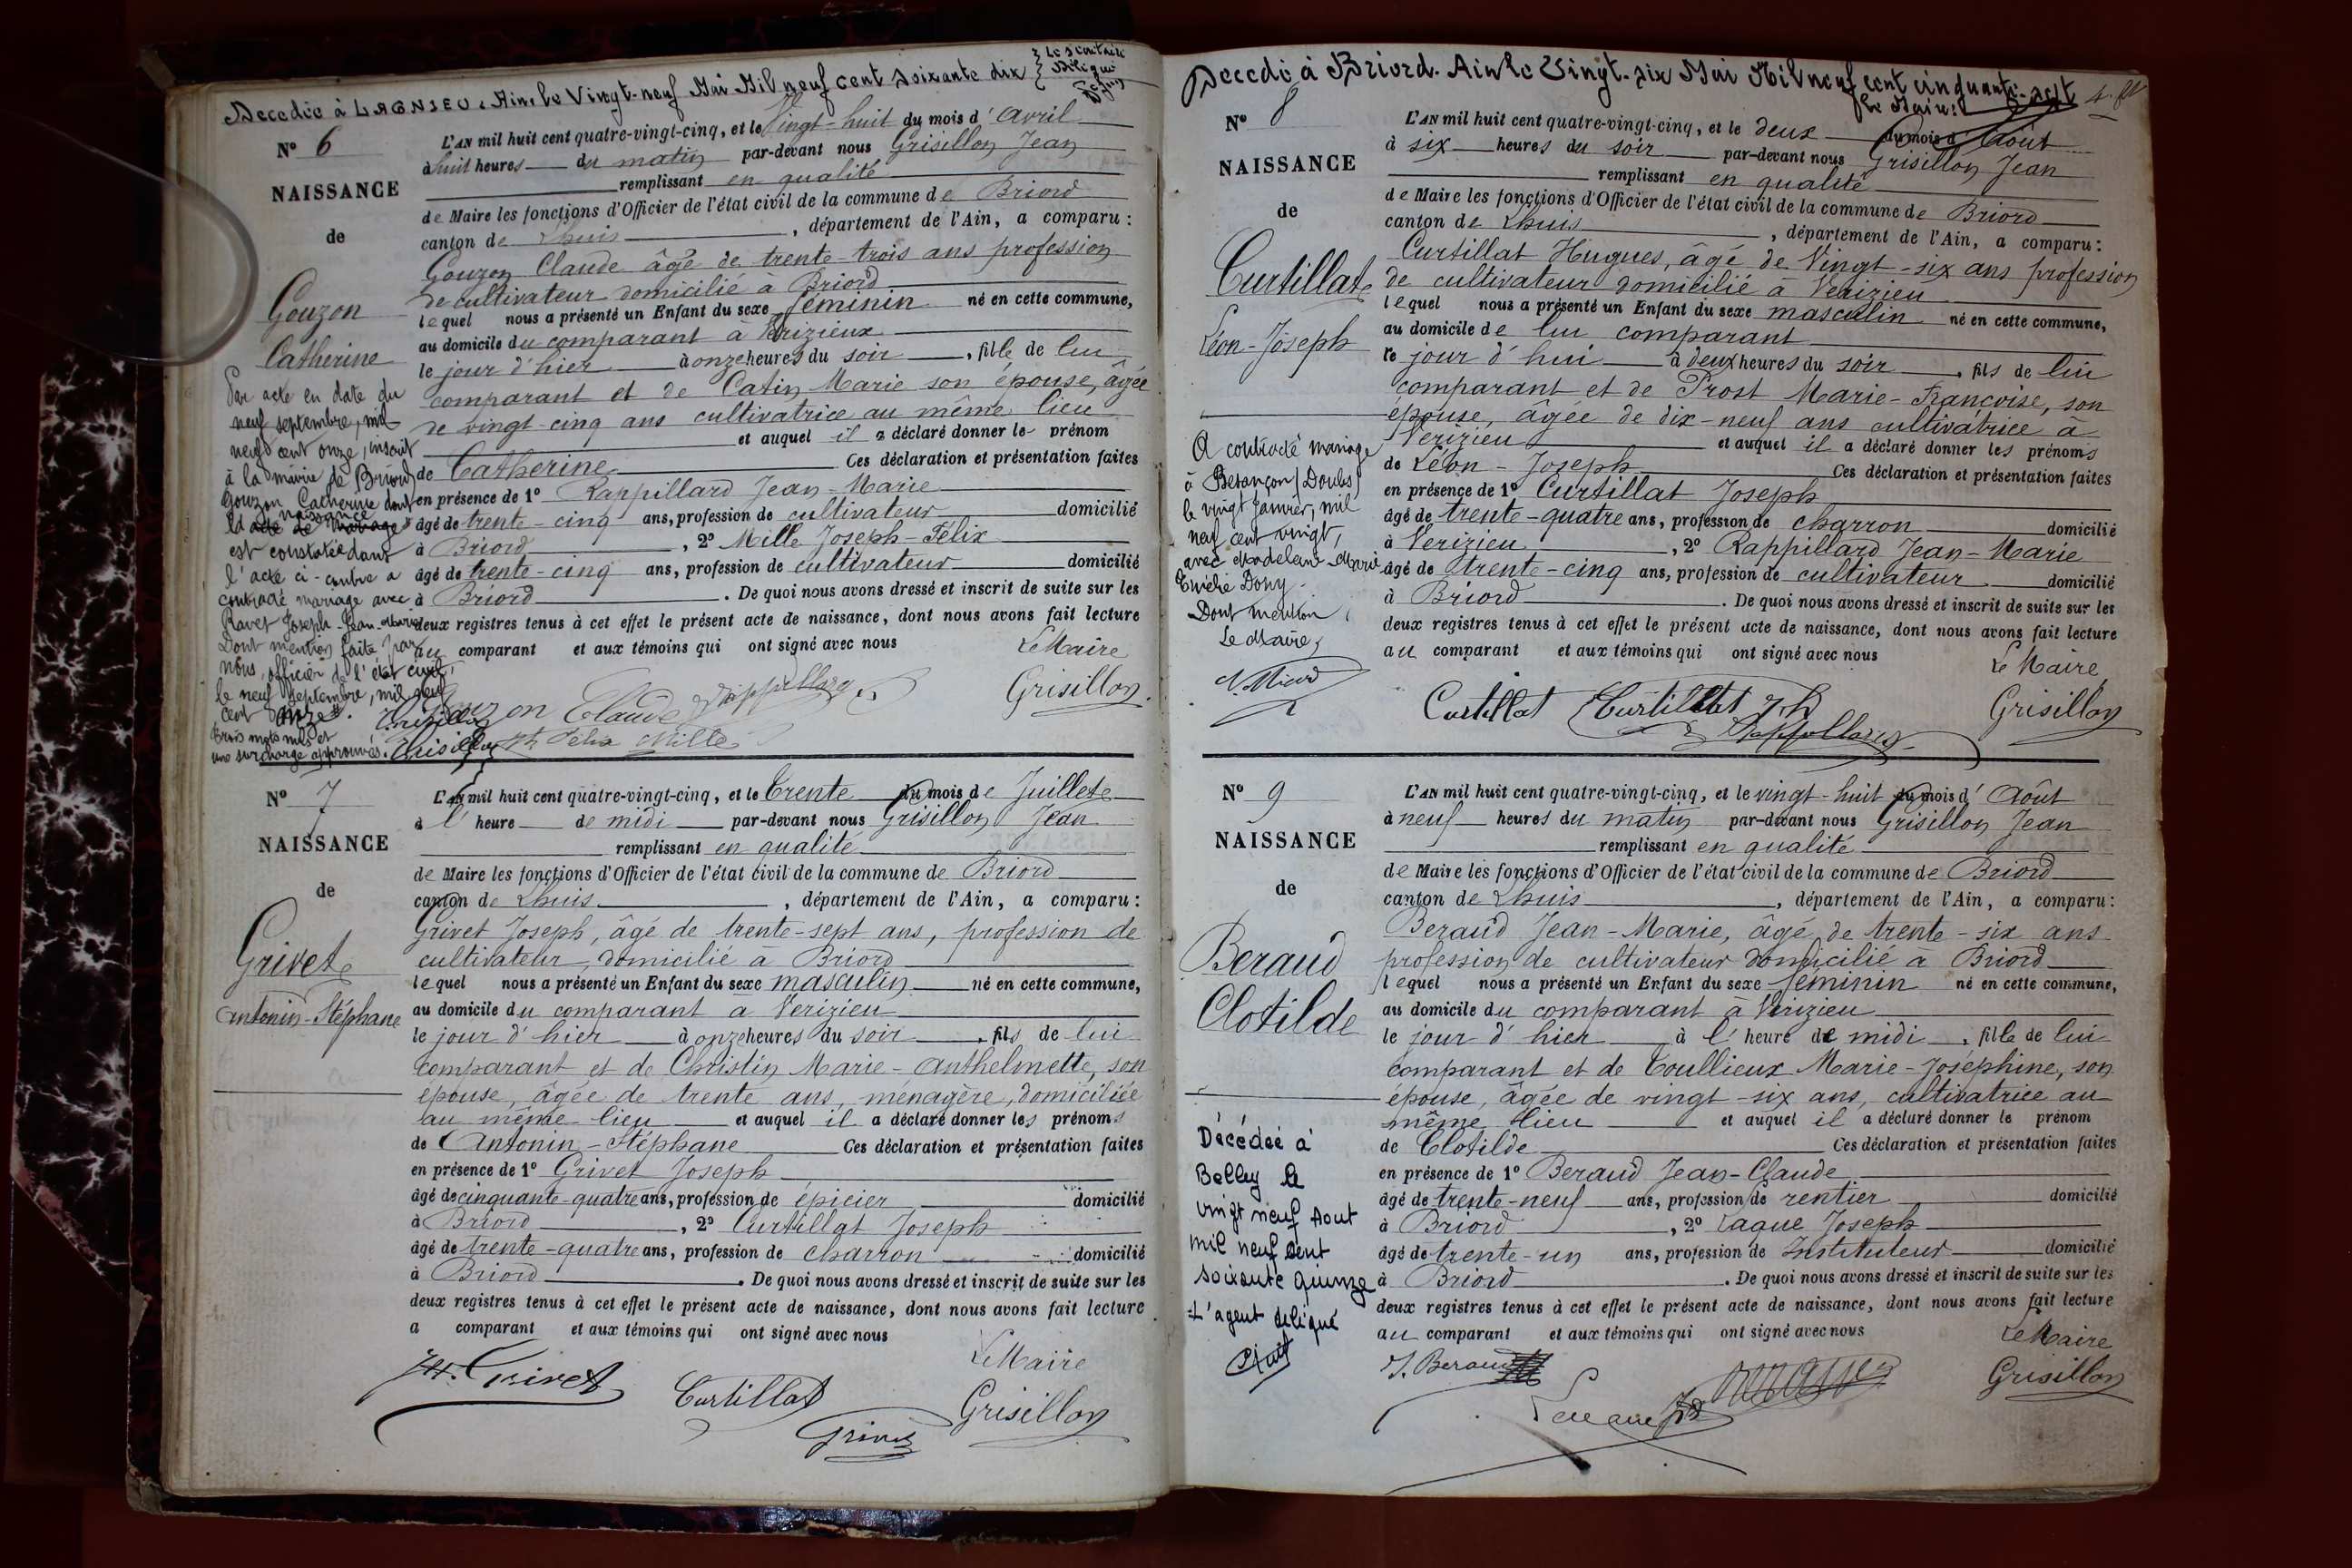 Decedée à LAGNIEU. Ain. le Vingt-neuf Mai Mil neuf cent soixante dix
Nº 6
NAISSANCE
de
Gouzon
Catherine
Par acte en date du
neuf septembre, mil
neuf cent onze, inscrit
à la mairie de Briord
Gouzon Catherine dont
naissance
est constatée dans
l'acte ci-contre a
contracté mariage avec
Ravet Joseph-Jean-Marie
Dont mention faite par
nous, officier de l'état civil,
le neuf septembre, mil neuf
cent onze.
trois mots nuls et
une surcharge approuvés.
L'AN mil huit cent quatre-vingt-cinq, et le Vingt-huit du mois d'Avril
à huit heures du matin par-devant nous Grisillon Jean
remplissant en qualité
de Maire les fonctions d'Officier de l'état civil de la commune de Briord
canton de Lhuis, département de l'Ain, a comparu :
Gouzon Claude âgé de trente trois ans profession
de cultivateur domicilié à Briord
lequel nous a présenté un Enfant du sexe féminin né en cette commune,
au domicile du comparant à Verizieux
le jour d'hier à onze heures du soir, fille de lui
comparant et de Catin Marie son épouse, âgée
de vingt-cinq ans cultivatrice au même lieu
et auquel il a déclaré donner le prénom
de Catherine Ces déclaration et présentation faites
en présence de 1º Rappillard Jean-Marie
âgé de trente-cinq ans, profession de cultivateur domicilié
à Briord, 2º Mille Joseph-Félix
âgé de trente-cinq ans, profession de cultivateur domicilié
à Briord. De quoi nous avons dressé et inscrit de suite sur les
deux registres tenus à cet effet le présent acte de naissance, dont nous avons fait lecture
au comparant et aux témoins qui ont signé avec nous
Le Maire
Gouzon Claude Rappillard Grisillon
Félix Mille
Nº 7
NAISSANCE
de
Grivet
Antonin-Stéphane
L'AN mil huit cent quatre-vingt-cinq, et le trente du mois de Juillet
à l'heure de midi par-devant nous Grisillon Jean
remplissant en qualité
de Maire les fonctions d'Officier de l'état civil de la commune de Briord
canton de Lhuis, département de l'Ain, a comparu :
Grivet Joseph, âgé de trente-sept ans, profession de
cultivateur, domicilié à Briord
lequel nous a présenté un Enfant du sexe masculin né en cette commune,
au domicile du comparant à Verizieu
le jour d'hier à onze heures du soir, fils de lui
comparant et de Christin Marie-Anthelmette, son
épouse, âgée de trente ans, ménagère, domiciliée
au même lieu et auquel il a déclaré donner les prénoms
de Antonin-Stéphane Ces déclaration et présentation faites
en présence de 1º Grivet Joseph
âgé de cinquante-quatre ans, profession de épicier domicilié
à Briord, 2º Curtillat Joseph
âgé de trente-quatre ans, profession de charron domicilié
à Briord. De quoi nous avons dressé et inscrit de suite sur les
deux registres tenus à cet effet le présent acte de naissance, dont nous avons fait lecture
a comparant et aux témoins qui ont signé avec nous
Le Maire
Jh. Grivet Curtillat Grisillon
Grivet
Decedé à Briord. Ain le Vingt-six Mai Mil neuf cent cinquante-sept
Le Maire:
Nº 8
NAISSANCE
de
Curtillat
Léon-Joseph
A contracté mariage
à Besançon (Doubs)
le vingt janvier, mil
neuf cent vingt,
avec Madeleine-Marie
Dony.
Dont mention
Le Maire,
L'AN mil huit cent quatre-vingt-cinq, et le deux du mois d'Août
à six heures du soir par-devant nous Grisillon Jean
remplissant en qualité
de Maire les fonctions d'Officier de l'état civil de la commune de Briord
canton de Lhuis, département de l'Ain, a comparu :
Curtillat Hugues, âgé de Vingt-six ans profession
de cultivateur domicilié à Verizieu
lequel nous a présenté un Enfant du sexe masculin né en cette commune,
au domicile de lui comparant
ce jour d'hui à deux heures du soir, fils de lui
comparant et de Prost Marie-Françoise, son
épouse, âgée de dix-neuf ans cultivatrice à
Verizieu et auquel il a déclaré donner les prénoms
de Léon-Joseph Ces déclaration et présentation faites
en présence de 1º Curtillat Joseph
âgé de trente-quatre ans, profession de charron domicilié
à Verizieu, 2º Rappillard Jean-Marie
âgé de trente-cinq ans, profession de cultivateur domicilié
à Briord. De quoi nous avons dressé et inscrit de suite sur les
deux registres tenus à cet effet le présent acte de naissance, dont nous avons fait lecture
au comparant et aux témoins qui ont signé avec nous
Le Maire
Curtillat Curtillat Jh Grisillon
Rappillard
Nº 9
NAISSANCE
de
Beraud
Clotilde
Décédée à
Belley le
vingt neuf Aout
mil neuf cent
soixante quinze
L'agent délégué
L'AN mil huit cent quatre-vingt-cinq, et le vingt-huit du mois d'Août
à neuf heures du matin par-devant nous Grisillon Jean
remplissant en qualité
de Maire les fonctions d'Officier de l'état civil de la commune de Briord
canton de Lhuis, département de l'Ain, a comparu :
Beraud Jean-Marie, âgé de trente-six ans
profession de cultivateur domicilié à Briord
lequel nous a présenté un Enfant du sexe féminin né en cette commune,
au domicile du comparant à Verizieu
le jour d'hier à l'heure de midi, fille de lui
comparant et de Toullieux Marie-Joséphine, son
épouse, âgée de vingt-six ans, cultivatrice au
même lieu et auquel il a déclaré donner le prénom
de Clotilde Ces déclaration et présentation faites
en présence de 1º Beraud Jean-Claude
âgé de trente-neuf ans, profession de rentier domicilié
à Briord, 2º Laque Joseph
âgé de trente-un ans, profession de Instituteur domicilié
à Briord. De quoi nous avons dressé et inscrit de suite sur les
deux registres tenus à cet effet le présent acte de naissance, dont nous avons fait lecture
au comparant et aux témoins qui ont signé avec nous
Le Maire
J. Beraud Grisillon